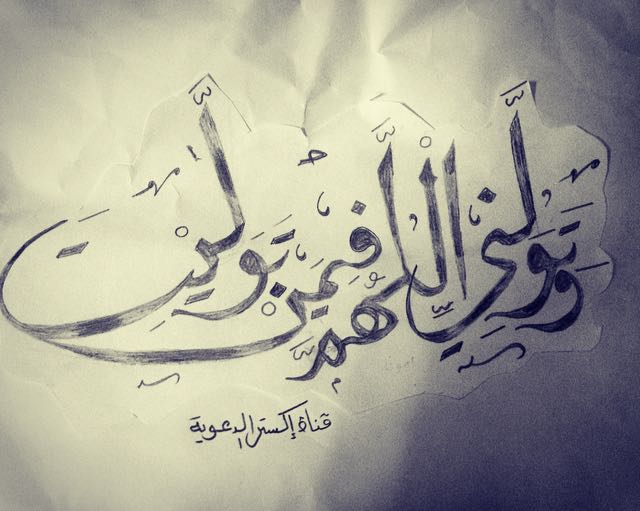 وَتَوَلَّنِي اللَّهُمَّ فِيمَنْ تَوَلَّيْتَ
قناة إكسترا الدعوية